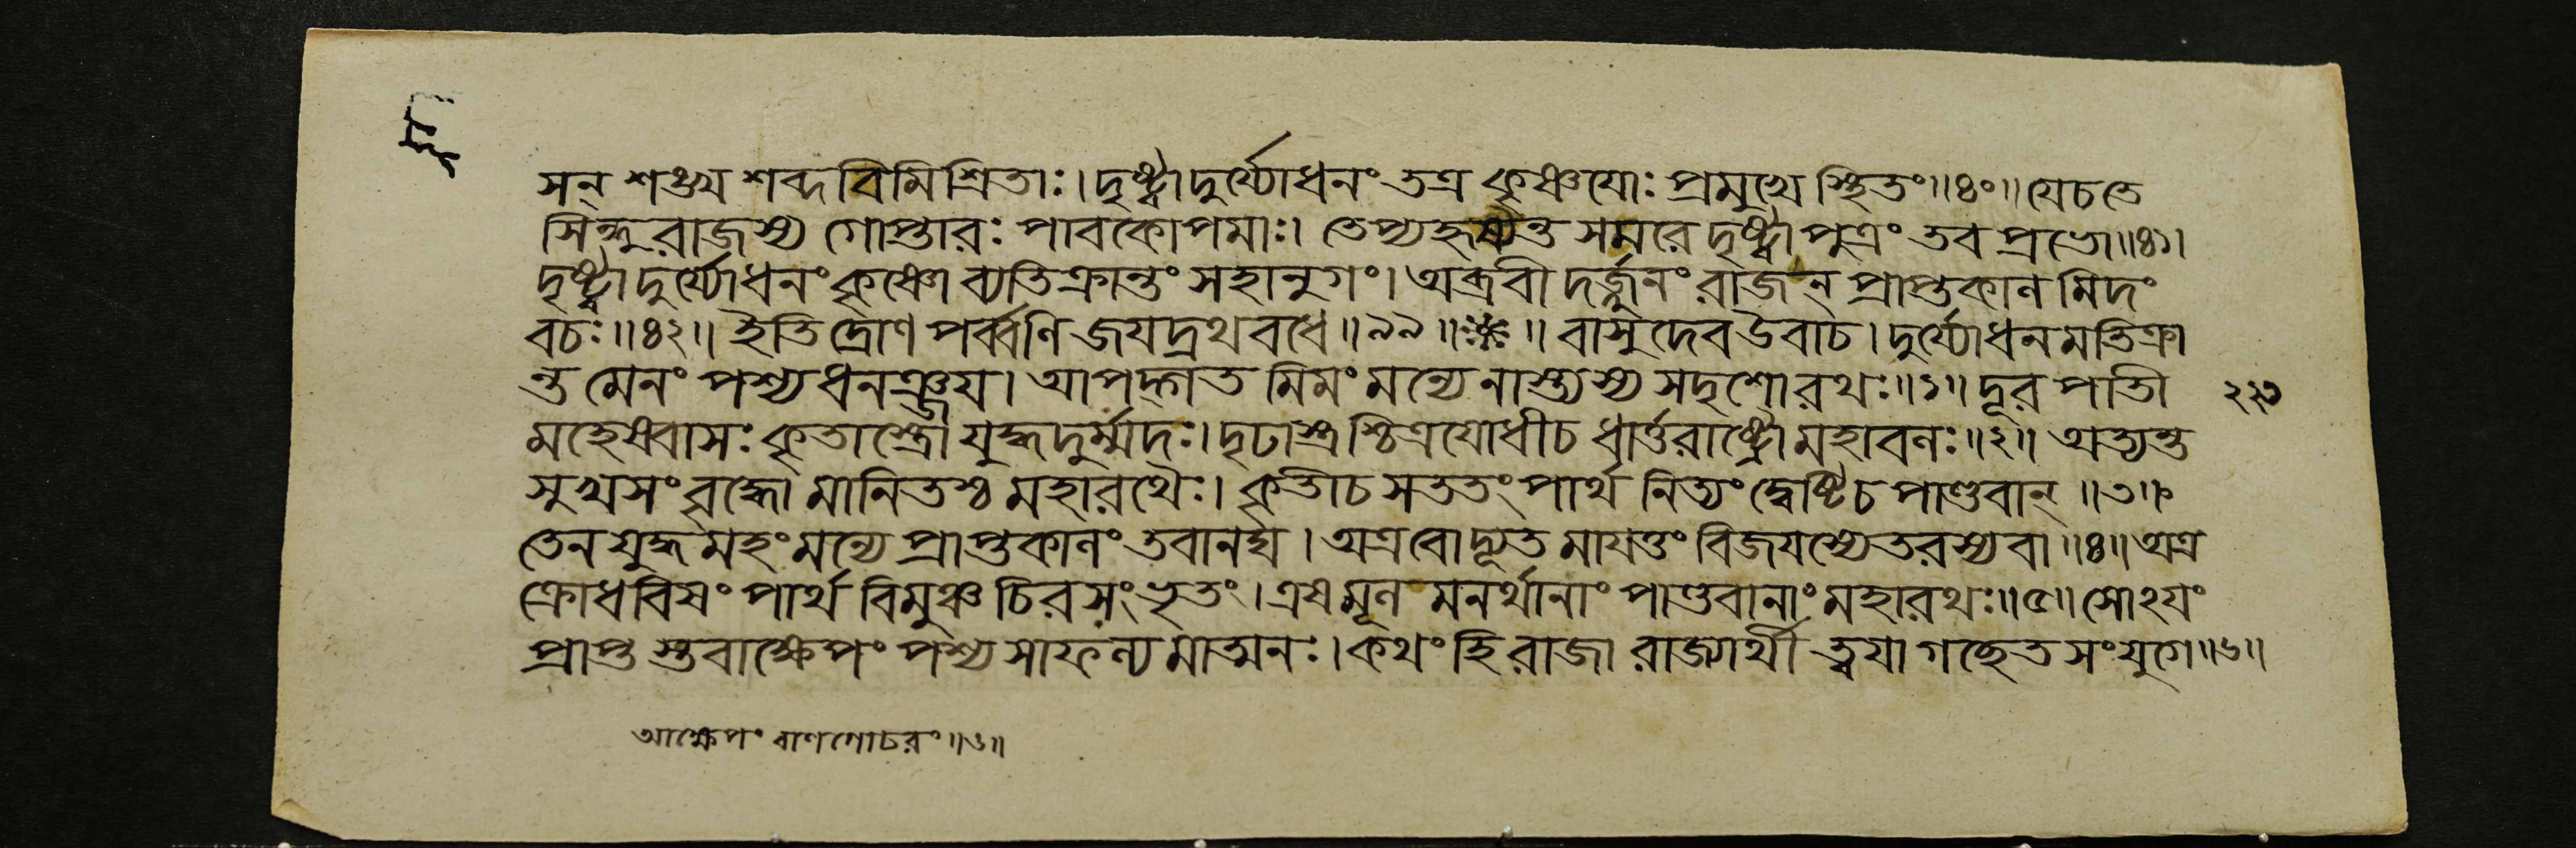 সন্ শঙ্খ শব্দ বিমিশ্রিতাঃ। দৃষ্ট্বা দুর্য্যোধনং তত্র কৃষ্ণয়োঃ প্রমুখে স্থিতং॥৪০॥ যে চ তে
সিন্ধুরাজস্য গোপ্তারঃ পাবকোপমাঃ। তেপ্যহৃষ্যন্ত সমরে দৃষ্ট্বা পুত্রং তব প্রভো॥৪১।
দৃষ্ট্বা দুর্য্যোধনং কৃষ্ণো ব্যতিক্রান্তং সহানুগং। অব্রবী দর্জ্জুনং রাজন্ প্রাপ্তকাল মিদং
বচঃ॥৪২॥ ইতি দ্রোণ পর্ব্বণি জয়দ্রথ বধে॥৯৯॥ ॥ বাসুদেব উবাচ। দুর্য্যোধন মতিক্রা
ন্ত মেনং পশ্য ধনঞ্জয়। আপদ্গত মিমং মন্যে নাস্ত্যস্য সদৃশো রথঃ॥১॥ দূর পাতী
মহেষ্বাসঃ কৃতাস্ত্রো যুদ্ধ দুর্ম্মদঃ। দৃঢাস্ত্র শ্চিত্রযোধী চ ধার্ত্তরাষ্ট্রো মহাবলঃ॥২॥ অত্যন্ত
সুখ সংবৃদ্ধো মানিতশ্চ মহারথৈঃ। কৃতী চ সততং পার্থ নিত্যং দ্বেষ্টি চ পাণ্ডবান্॥৩॥
তেন যুদ্ধ মহং মন্যে প্রাপ্তকালং তবানঘ। অত্র বো দ্যূত মায়ত্তং বিজয়স্যেতরস্য বা॥৪॥ অত্র
ক্রোধ বিষং পার্থ বিমুঞ্চ চির সংভৃতং। এষ মূল মনর্থানাং পাণ্ডবানাং মহারথঃ॥৫॥ সোঽয়ং
প্রাপ্ত স্তবাক্ষেপং পশ্য সাফল্য মাত্মনঃ। কথং হি রাজা রাজ্যার্থী ত্বয়া গচ্ছেত সংযুগে॥৬॥
২২৩
আক্ষেপং বাণগোচরং॥৬॥